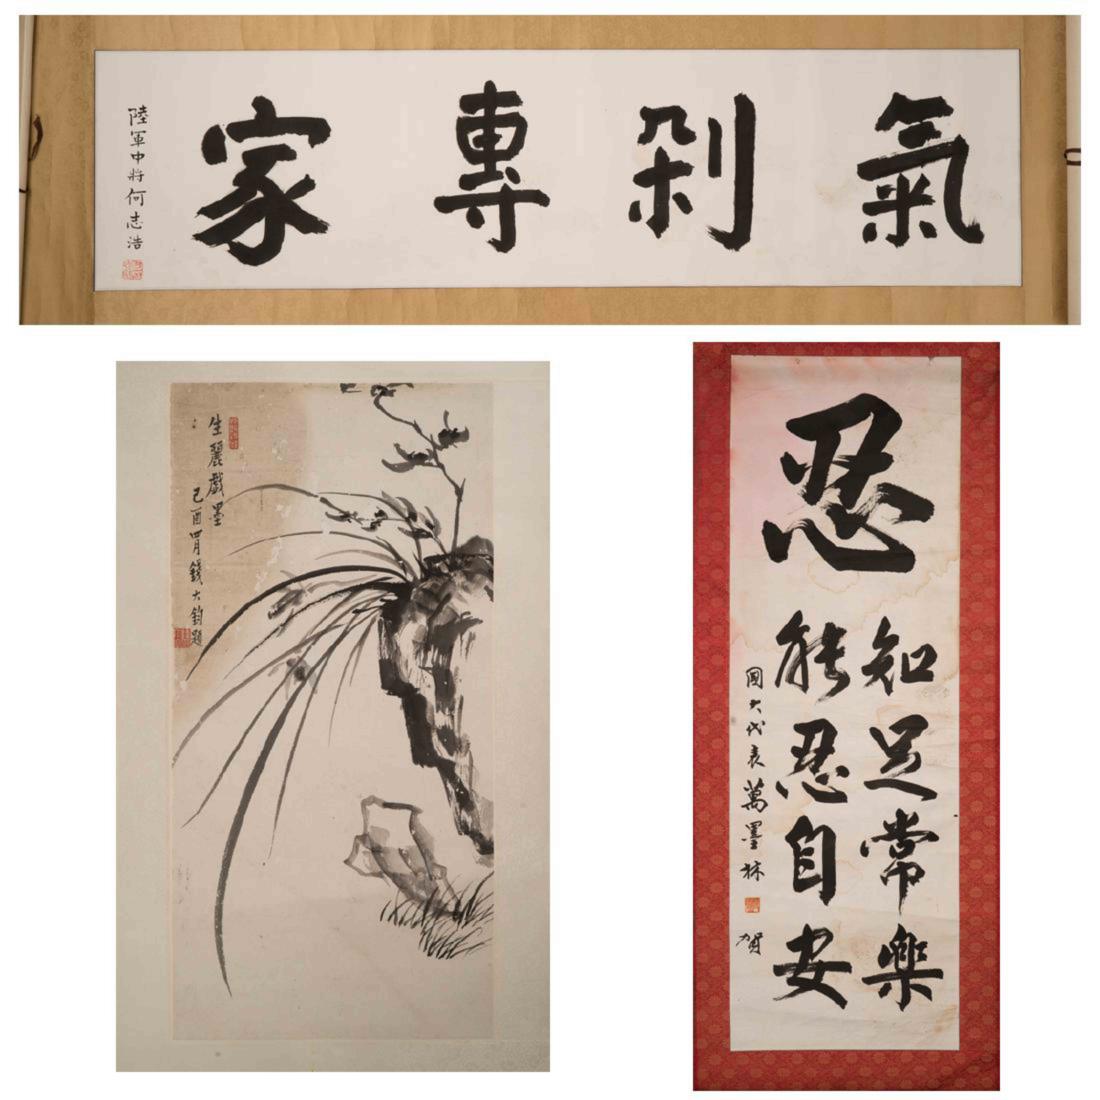 氣剁專家
陸軍中將何志浩
生麗戲墨
己酉四月錢大鈞題
忍
知足常樂
能忍自安
國大代表萬墨林賀